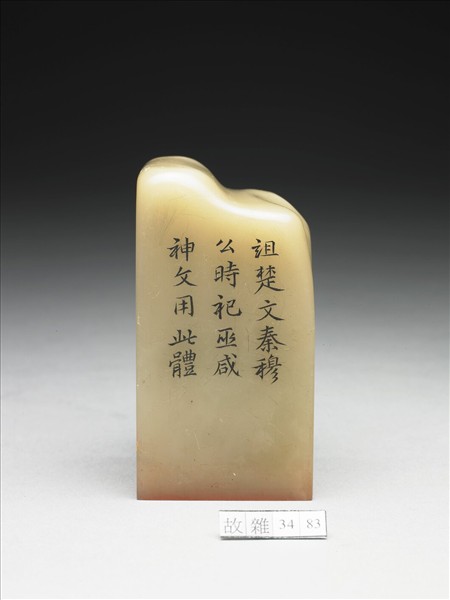 詛楚文秦穆
公時祀巫咸
神文用此體
故雜 34 83